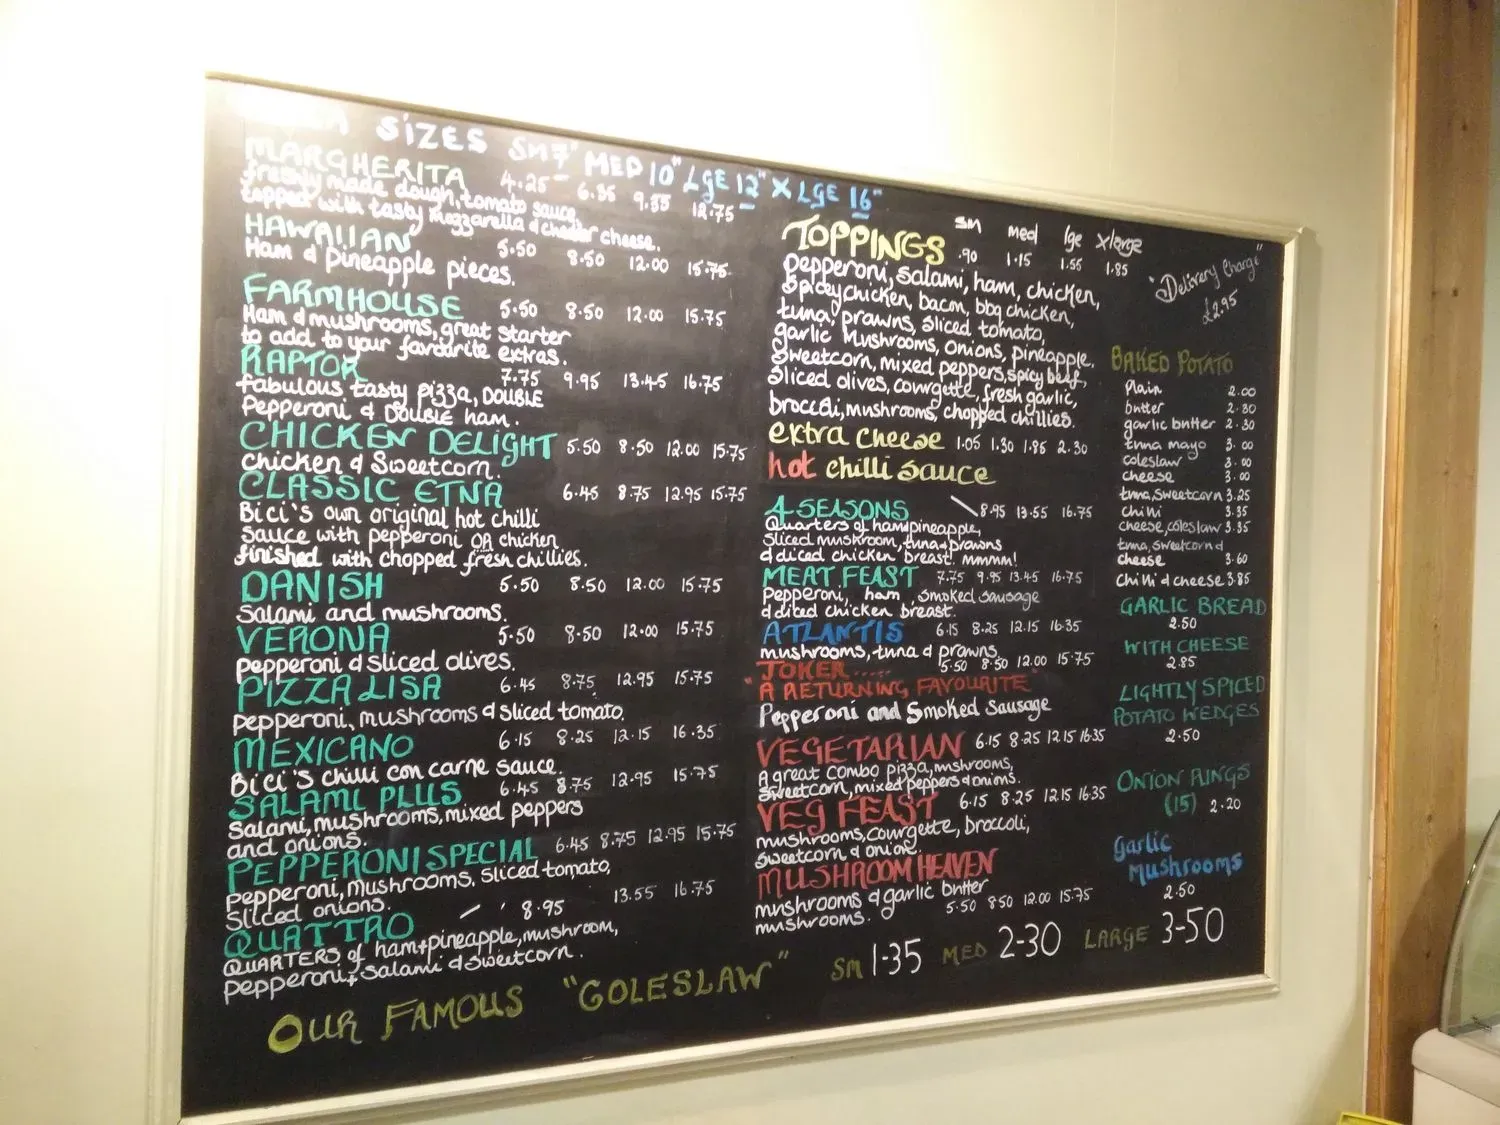 SIZES SM 7" MED 10" LGE 12" X LGE 16"
MARGHERITA 4.25 6.35 9.35 12.75
freshly made dough, tomato sauce,
topped with tasty mozzarella & chedder cheese.
HAWAIIAN 5.50 8.50 12.00 15.75
Ham & pineapple pieces.
FARMHOUSE 5.50 8.50 12.00 15.75
Ham & mushrooms, great starter
to add to your favourite extras.
RAPTOR 7.75 9.95 13.45 16.75
fabulous tasty pizza, DOUBLE
Pepperoni & DOUBLE ham.
CHICKEN DELIGHT 5.50 8.50 12.00 15.75
Chicken & Sweetcorn.
CLASSIC ETNA 6.45 8.75 12.95 15.75
Bici's own original hot chilli
Sauce with pepperoni OR chicken
finished with chopped fresh chillies.
DANISH 5.50 8.50 12.00 15.75
Salami and mushrooms.
VERONA 5.50 8.50 12.00 15.75
pepperoni & sliced olives.
PIZZA LISA 6.45 8.75 12.95 15.75
pepperoni, mushrooms & sliced tomato.
MEXICANO 6.15 8.25 12.15 16.35
Bici's chilli con carne sauce.
SALAMI PLUS 6.45 8.75 12.95 15.75
Salami, mushrooms, mixed peppers
and onions.
PEPPERONI SPECIAL 6.45 8.75 12.95 15.75
pepperoni, mushrooms, sliced tomato,
sliced onions.
QUATTRO 8.95 13.55 16.75
QUARTERS of ham+pineapple, mushroom,
pepperoni+salami & sweetcorn.
TOPPINGS
SM med lge xlarge
.90 1.15 1.55 1.85
pepperoni, salami, ham, chicken,
Spicey chicken, bacon, bbq chicken,
tuna, prawns, sliced tomato,
garlic mushrooms, onions, pineapple.
Sweetcorn, mixed peppers, spicy beef,
sliced olives, courgette, fresh garlic,
broccoli, mushrooms, chopped chillies.
extra cheese 1.05 1.30 1.85 2.30
hot chilli sauce
4 SEASONS 8.95 13.55 16.75
Quarters of ham+pineapple,
sliced mushroom, tuna+prawns
& diced chicken breast. mmmm!
MEAT FEAST 7.75 9.95 13.45 16.75
pepperoni, ham, smoked sausage
& diced chicken breast.
ATLANTIS 6.15 8.25 12.15 16.35
mushrooms, tuna & prawns
JOKER..... 5.50 8.50 12.00 15.75
"A RETURNING FAVOURITE"
Pepperoni and Smoked Sausage
VEGETARIAN 6.15 8.25 12.15 16.35
A great combo pizza, mushrooms,
sweetcorn, mixed peppers & onions.
VEG FEAST 6.15 8.25 12.15 16.35
mushrooms, courgette, broccoli,
sweetcorn & onion.
MUSHROOM HEAVEN
mushrooms & garlic butter
mushrooms. 5.50 8.50 12.00 15.75
"Delivery Charge"
£2.95
BAKED POTATO
Plain 2.00
butter 2.30
garlic butter 2.30
tuna mayo 3.00
coleslaw 3.00
cheese 3.00
tuna, sweetcorn 3.25
chilli 3.35
cheese, coleslaw 3.35
tuna, sweetcorn &
cheese 3.60
chilli & cheese 3.85
GARLIC BREAD
2.50
WITH CHEESE
2.85
LIGHTLY SPICED
POTATO WEDGES
2.50
ONION RINGS
(15) 2.20
Garlic
Mushrooms
2.50
OUR FAMOUS "COLESLAW" SM 1-35 MED 2-30 LARGE 3-50